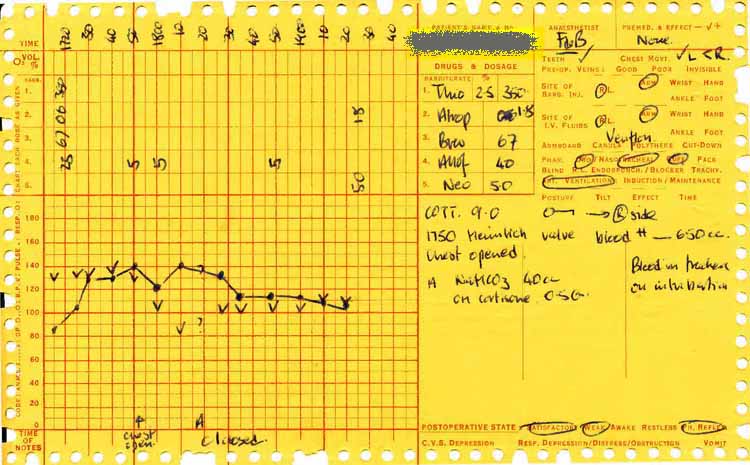 TIME 1720 30 40 50 1800 10 20 30 40 50 1900 10 20 30 40
PATIENT'S NAME & No.
ANAESTHETIST
PREMED. & EFFECT — ✓ +
None.
VOL.
O₂ %
DRUGS & DOSAGE
TEETH ✓ CHEST MOVT. ✓ L < R.
PRE-OP. VEINS: GOOD POOR INVISIBLE
BARBITURATE: %
1. Thio 2.5 350
SITE OF BARB. INJ. R L. ARM WRIST HAND
ANKLE FOOT
2. Atrop
SITE OF I.V. FLUIDS R L. ARM WRIST HAND
ANKLE FOOT
3. 67
Venflon
ARMBOARD CANULA POLYTHENE CUT-DOWN
4. 40
PHAR. ORO/NASO TRACHEAL CUFF PACK
BLIND R.L. ENDOBRONCH./BLOCKER TRACHY.
5. Neo 5.0
INT. VENTILATION INDUCTION/MAINTENANCE
CHART EACH DOSE AS GIVEN
BARB.
1.
2.
3.
4. 25 5 5 5
5.
POSTURE TILT EFFECT TIME
→ R side
1750 Heimlich valve bleed ++ — 650 cc.
Chest opened
A NaHCO3 40cc
on cortisone 0.5G.
Bleed in trachea
on intubation
180
160
140
120
100
80
60
40
20
0
TIME OF NOTES
chest open.
A
closed.
POSTOPERATIVE STATE SATISFACTORY WEAK AWAKE RESTLESS PH. REFLEX
C.V.S. DEPRESSION RESP. DEPRESSION/DISTRESS/OBSTRUCTION VOMIT